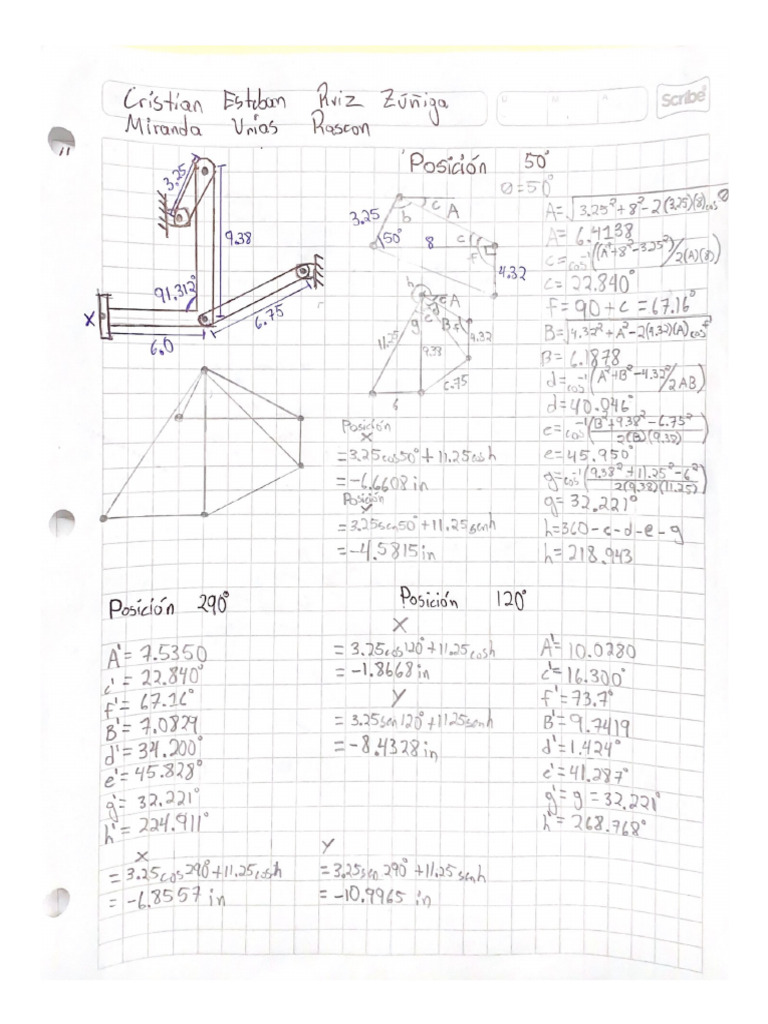 Cristian Esteban Ruiz Zúñiga
Miranda Urias Rascon
Scribe
11
3.25
9.38
91.312°
X
6.0
6.75
Posición 50°
θ=50°
3.25
b
c
A
50°
8
c
f
4.32
h
c
A
d
e
g
B
f
4.32
11.25
9.38
6.75
6
A=√3.25²+8²-2(3.25)(8)cosθ
A= 6.4138
c=cos⁻¹((A²+8²-3.25²)/2(A)(8))
c= 22.840°
f= 90+c = 67.16°
B=√4.32²+A²-2(4.32)(A)cosf
B= 6.1878
d=cos⁻¹(A²+B²-4.32²/2AB)
d= 40.046°
e=cos⁻¹(B²+9.38²-6.75²/2(B)(9.32))
e= 45.950°
g=cos⁻¹(9.38²+11.25²-6²/2(9.38)(11.25))
g= 32.221°
h=360-c-d-e-g
h= 218.943
Posición
X
=3.25cos50°+11.25cosh
=-6.6608 in
Posición
Y
=3.25sen50°+11.25senh
=-4.5815 in
Posición 290°
A'= 7.5350
c'= 22.840°
f'= 67.16°
B'= 7.0829
d'= 34.200°
e'= 45.828°
g'= 32.221°
h'= 224.911°
X
= 3.25cos290°+11.25cosh
= -6.8557 in
Y
=3.25sen 290° +11.25 senh
= -10.9965 in
Posición 120°
X
= 3.25cos120°+11.25cosh
= -1.8668 in
Y
= 3.25sen120°+11.25senh
= -8.4328 in
A'= 10.0280
c'= 16.300°
f'= 73.7°
B'= 9.7419
d'= 1.424°
e'= 41.287°
g'= g = 32.221°
h'= 268.768°